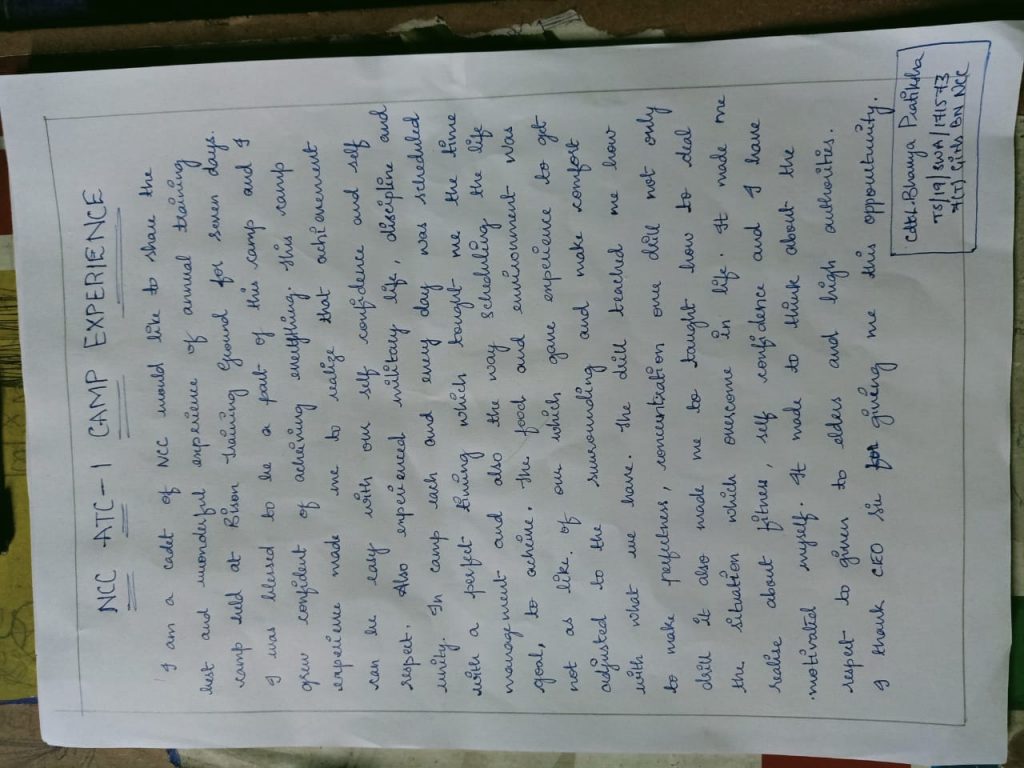 NCC - ATC - 1 CAMP EXPERIENCE
I am a cadet of NCC would like to share the
best and wonderful experience of annual training
camp held at Bison training Ground for seven days.
I was blessed to be a part of this camp and I
grew confident of achieving everything. This camp
experience made me to realize that achievement
can be easy with our self confidence and self
respect. Also experienced military life, discipline and
unity. In camp each and every day was scheduled
with a perfect timing which tought me the time
management and also the way scheduling the life
goal, to achieve. The food and environment was
not as like of our which gave experience to get
adjusted to the surrounding and make comfort
with what we have. The drill teached me how
to make perfectness, concentration once drill not only
drill it also made me to taught how to deal
the situation which overcome in life. It made me
realise about fitness, self confidence and I have
motivated myself. It made to think about the
respect to given to elders and high authorities.
I thank CEO sir giving me this opportunity.
Cdt. Bhavya Pratiksha
TS/19/SWA/171573
7(T) Girls BN NCC